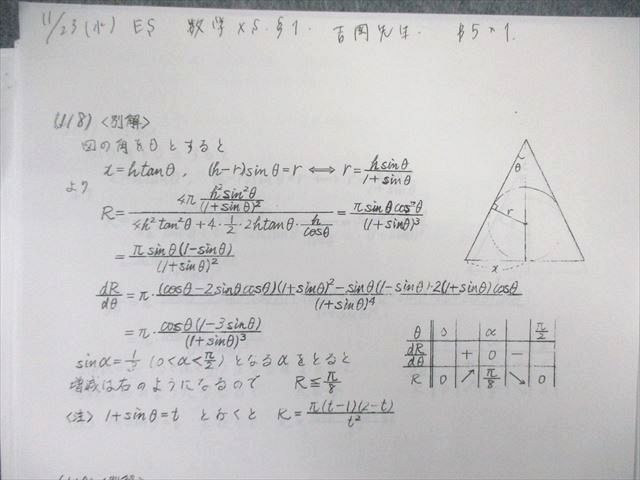 11/23(水) ES 数学XS.§1. 吉岡先生. §5*1.
(118) 〈別解〉
図の角をθとすると
x=htanθ, (h-r)sinθ=r ⟺ r=hsinθ/(1+sinθ)
より
R=4π h²sin²θ/(1+sinθ)² / (4h²tan²θ+4・1/2・2htanθ・h/cosθ) = πsinθcos²θ/(1+sinθ)³
=πsinθ(1-sinθ)/(1+sinθ)²
dR/dθ=π・{(cosθ-2sinθcosθ)(1+sinθ)²-sinθ(1-sinθ)・2(1+sinθ)cosθ}/(1+sinθ)⁴
=π・cosθ(1-3sinθ)/(1+sinθ)³
sinα=1/3 (0<α<π/2) となるαをとると
増減は右のようになるので R≦π/8
〈注〉 1+sinθ=t とおくと R=π(t-1)(2-t)/t²
θ
r
x
θ 0 α π/2
dR/dθ + 0 -
R 0 ↗ π/8 ↘ 0